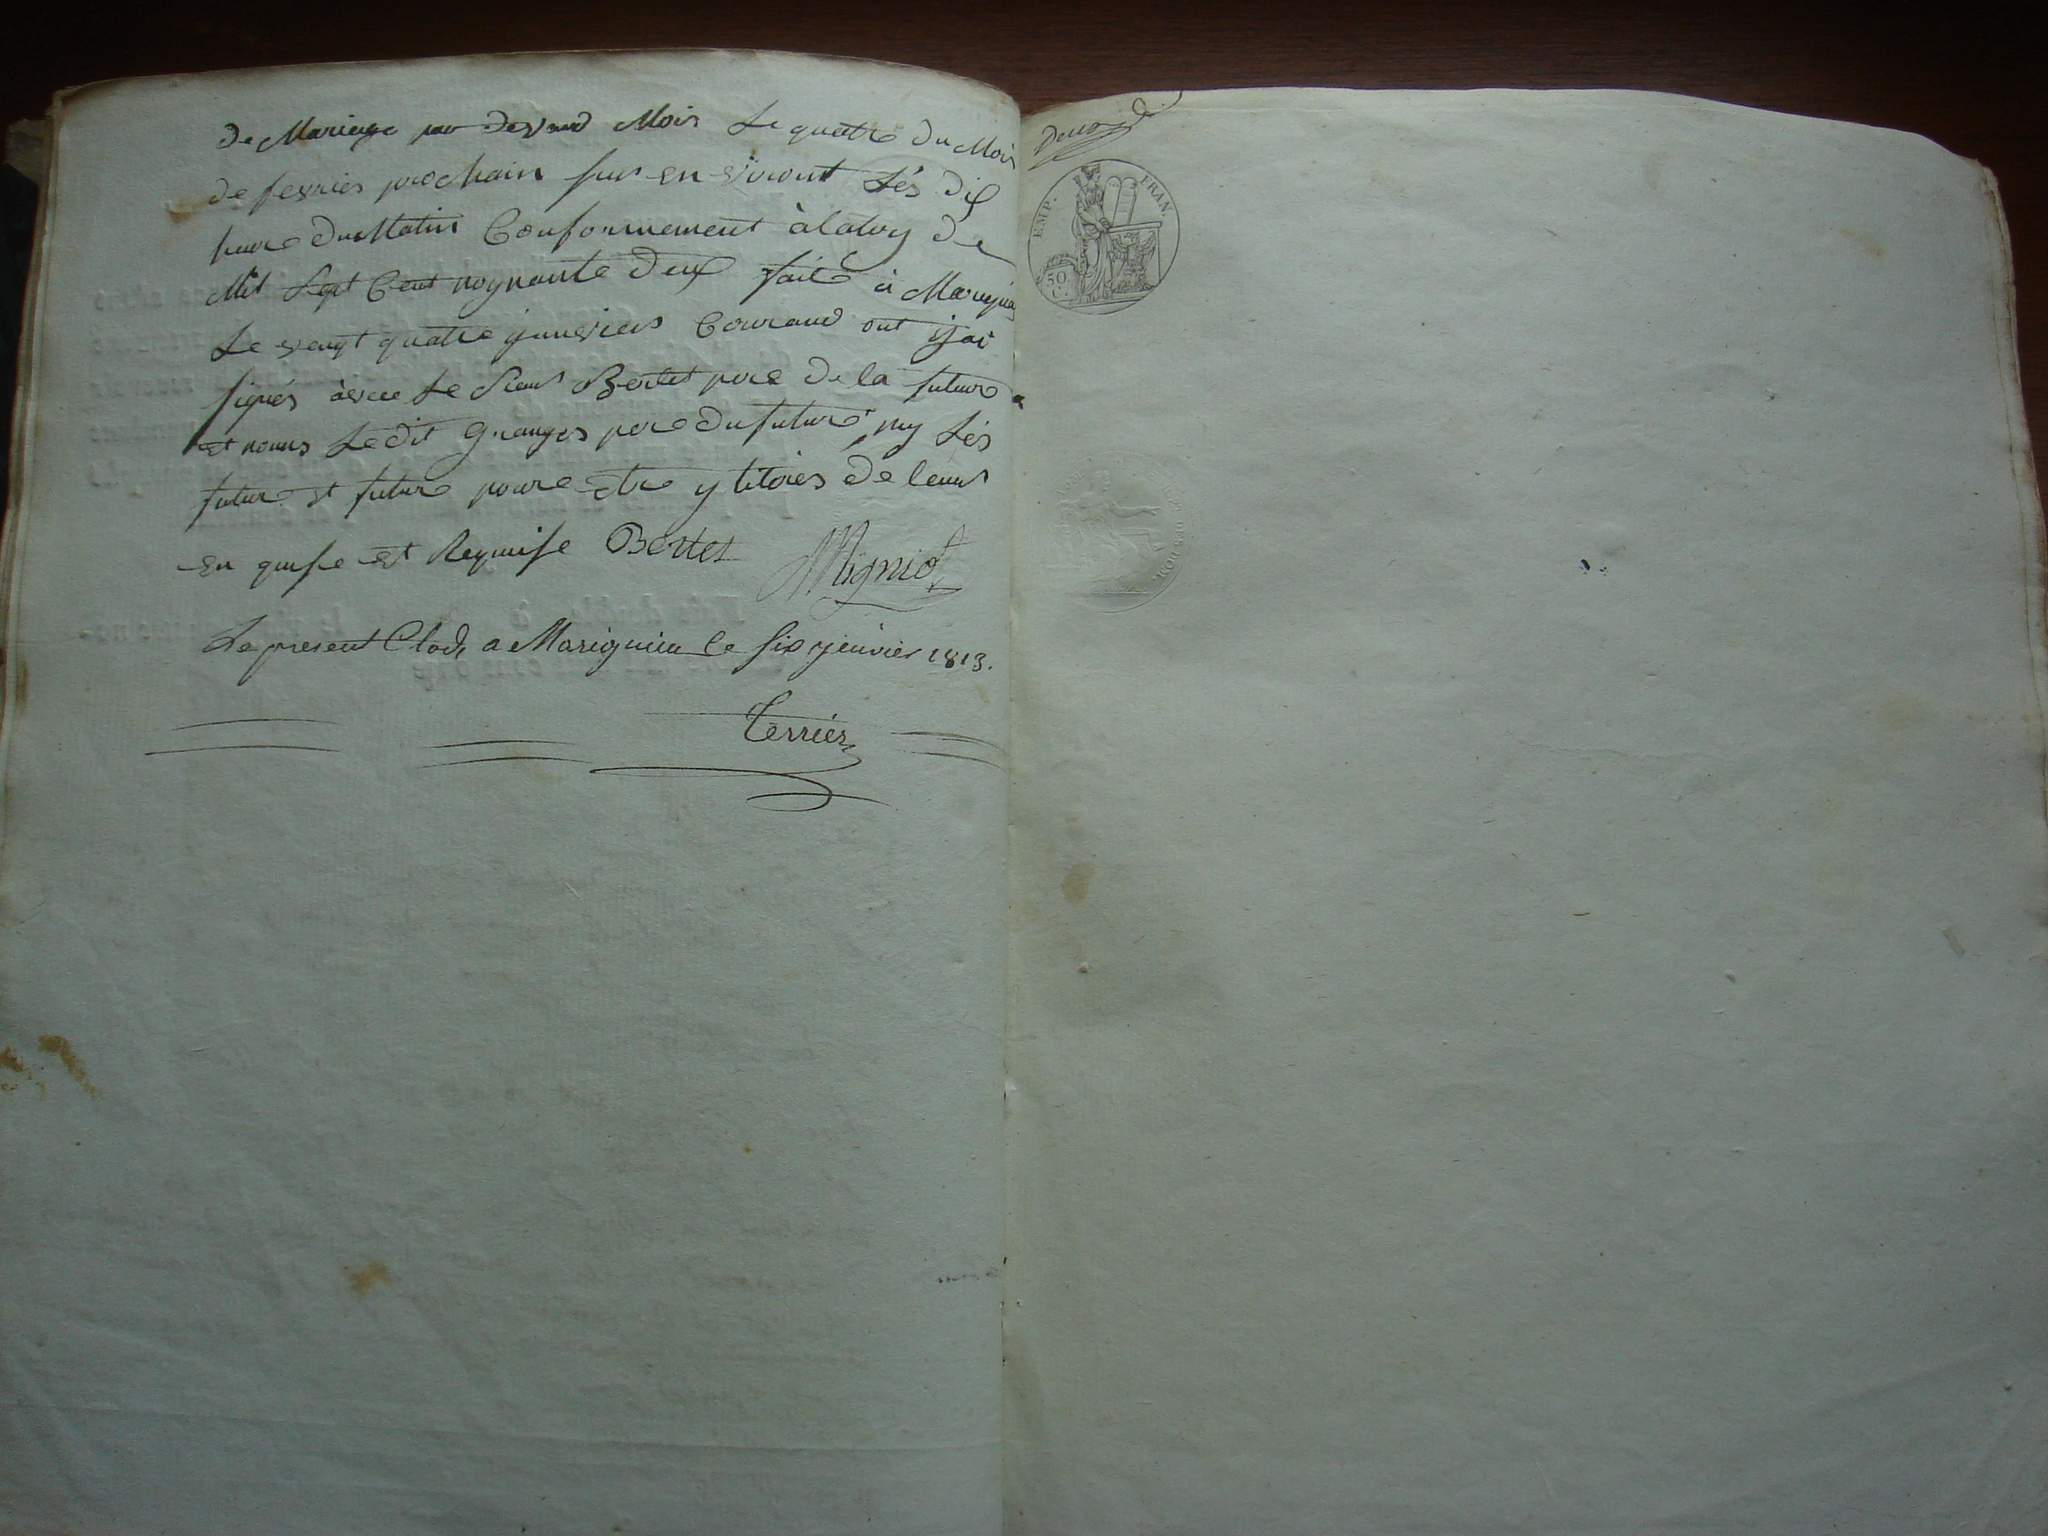 de Mariage par devand Mois Le quatre du Mois
de fevries prochain sur en viront Lés dix
heure du Matin Conformement à la loy de
Mil Sept Cent noynante deux fait à Marignie
Le vengt quatre janviers Courand ont ÿ jai
signés àvec Le Sieur Bertet pere de la future
et nonns Le dit Granges pere du future, ny Lés
futur et future pour etre y litéres de leurs
en quise et Requise Bertet MMigniot
Le present Clos, a Marignieu le six janvier 1813.
Terrier
EMP. FRAN.
50
C.